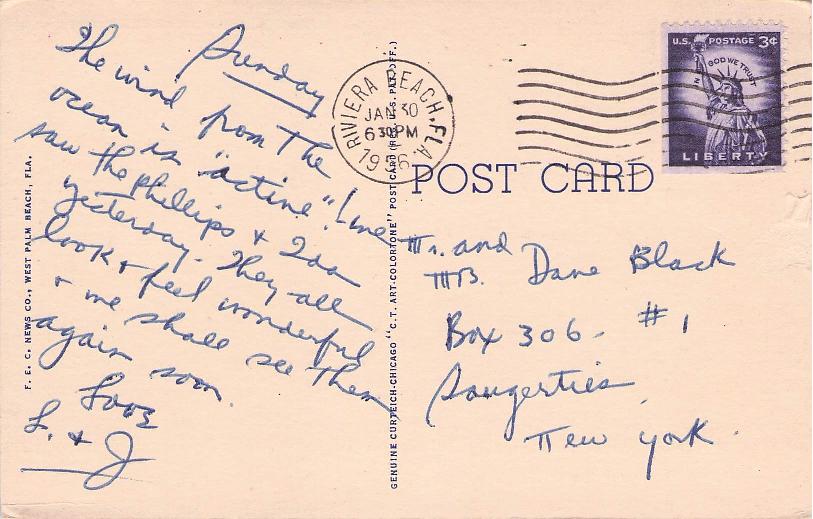 Sunday
The wind from the
ocean is "active"! We
saw the Phillips & Ida
yesterday. They all
look & feel wonderful
& we shall see them
again soon.
Love
L. & J
F. E. C. NEWS CO., WEST PALM BEACH, FLA.
GENUINE CURTEICH-CHICAGO "C.T. ART-COLORTONE" POST CARD (REG. U.S. PAT. OFF.)
RIVIERA BEACH, FLA.
JAN 30
6 30 PM
U.S. POSTAGE 3¢
IN GOD WE TRUST
LIBERTY
POST CARD
Mr. and
Mrs. Dane Black
Box 306 - #1
Saugerties
New York.